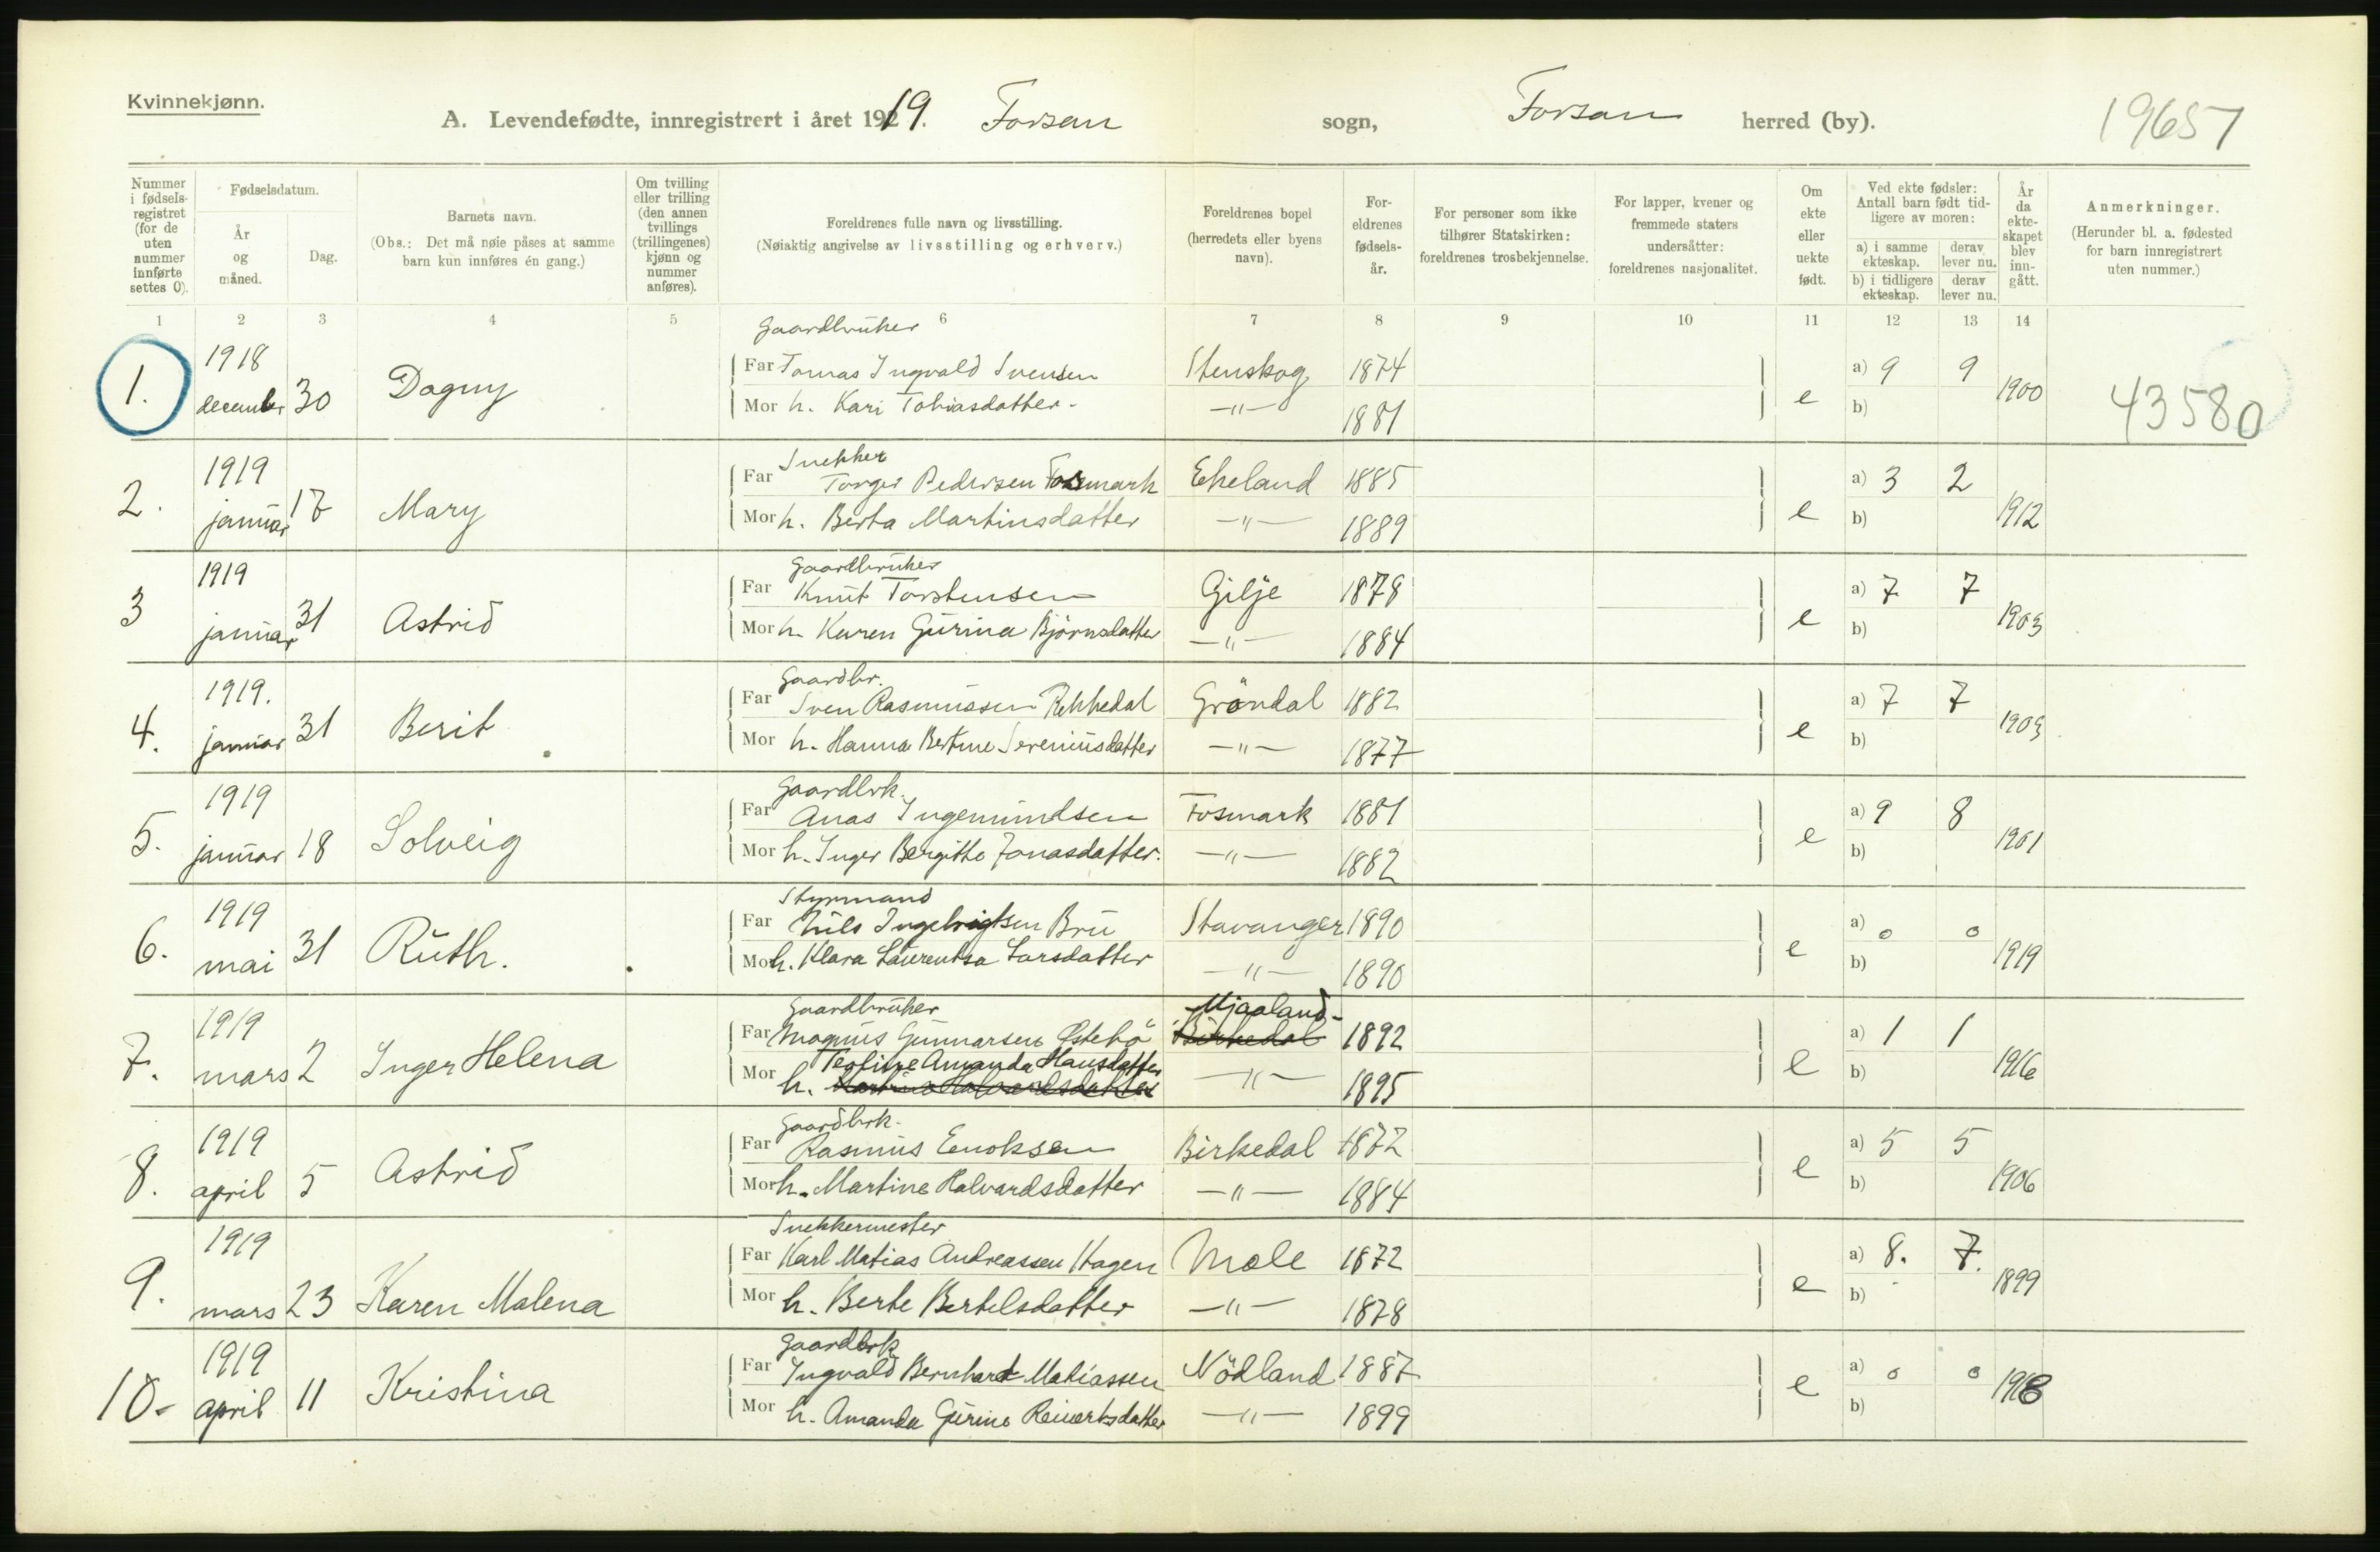 Kvinnekjønn.
A. Levendefødte, innregistrert i året 1919. Forsan sogn, Forsan herred (by). 19657
Nummer i fødsels-registret (for de uten nummer innførte settes 0).
Fødselsdatum.
År og måned.
Dag.
Barnets navn.
(Obs.: Det må nøie påses at samme barn kun innføres én gang.)
Om tvilling eller trilling (den annen tvillings (trillingenes) kjønn og nummer anføres).
Foreldrenes fulle navn og livsstilling.
(Nøiaktig angivelse av livsstilling og erhverv.)
Foreldrenes bopel (herredets eller byens navn).
For-eldrenes fødsels-år.
For personer som ikke tilhører Statskirken: foreldrenes trosbekjennelse.
For lapper, kvener og fremmede staters undersåtter: foreldrenes nasjonalitet.
Om ekte eller uekte født.
Ved ekte fødsler: Antall barn født tid-ligere av moren:
a) i samme ekteskap. derav lever nu.
b) i tidligere ekteskap. derav lever nu.
År da ekte-skapet blev inn-gått.
Anmerkninger.
(Herunder bl. a. fødested for barn innregistrert uten nummer.)
1 2 3 4 5 6 7 8 9 10 11 12 13 14
Gaardbruker
1. 1918 december 30 Dagny
Far Tomas Ingvald Svensen Stenskog 1874 e a) 9 9 1900 43580
Mor h. Kari Tobiasdatter. —"— 1881 b)
Snekker
2. 1919 januar 17 Mary
Far Torger Pedersen Fosmark Ekeland 1885 e a) 3 2 1912
Mor h. Berta Martinsdatter —"— 1889 b)
Gaardbruker
3 1919 januar 31 Astrid
Far Knut Torstensen Gilje 1878 e a) 7 7 1903
Mor h. Karen Gurina Bjørnsdatter —"— 1884 b)
Gaardbr.
4. 1919. januar 31 Berit
Far Sven Rasmussen Rekkedal Gröndal 1882 e a) 7 7 1903
Mor h. Hanna Bertine Sereniusdatter —"— 1877 b)
Gaardbrk.
5. 1919 januar 18 Solveig
Far Anas Ingemundsen Fosmark 1881 e a) 9 8 1901
Mor h. Inger Bergitte Jonasdatter. —"— 1882 b)
Styrmand
6. 1919 mai 31 Ruth.
Far Nils Ingebrigtsen Bru Stavanger 1890 e a) 0 0 1919
Mor h. Klara Laurentsa Larsdatter —"— 1890 b)
Gaardbruker Mjaaland
7. 1919 mars 2 Inger Helena
Far Magnus Gunnarsen Østebö Birkedal 1892 e a) 1 1 1916
Teoline Amanda Hansdatter
Mor h. Martine Halvardsdatter —"— 1895 b)
Gaardbrk.
8. 1919 april 5 Astrid
Far Rasmus Enoksen Birkedal 1872 e a) 5 5 1906
Mor h. Martine Halvardsdatter —"— 1884 b)
Snekkermester
9. 1919 mars 23 Karen Malena
Far Karl Matias Andreassen Hagen Mæle 1872 e a) 8. 7. 1899
Mor h. Berte Bertelsdatter —"— 1878 b)
Gaardbrk
10. 1919 april 11 Kristina
Far Ingvald Bernhard Matiassen Nödland 1887 e a) 0 0 1918
Mor h. Amanda Gurine Reinertsdatter —"— 1899 b)